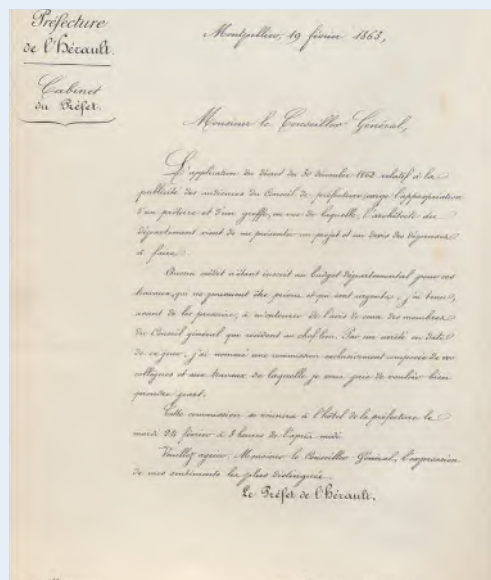 Préfecture
de l'Hérault.
Cabinet
du Préfet.
Montpellier, 19 février 1863,
Monsieur le Conseiller Général,
L'application du décret du 30 décembre 1862 relatif à la
publicité des audiences du Conseil de préfecture exige l'appropriation
d'un prétoire et d'un greffe, en vue de laquelle, l'architecte du
département vient de me présenter un projet et un devis des dépenses
à faire.
Aucun crédit n'étant inscrit au budget départemental pour ces
travaux, qui ne pouvaient être prévus et qui sont urgents, j'ai tenu,
avant de les prescrire, à m'entourer de l'avis de ceux des membres
du Conseil général qui résident au chef-lieu. Par un arrêté en date
de ce jour, j'ai nommé une commission exclusivement composée de vos
collègues et aux travaux de laquelle je vous prie de vouloir bien
prendre part.
Cette commission se réunira à l'hôtel de la préfecture le
mardi 24 février à 3 heures de l'après midi.
Veuillez agréer, Monsieur le Conseiller Général, l'expression
de mes sentiments les plus distingués.
Le Préfet de l'Hérault.